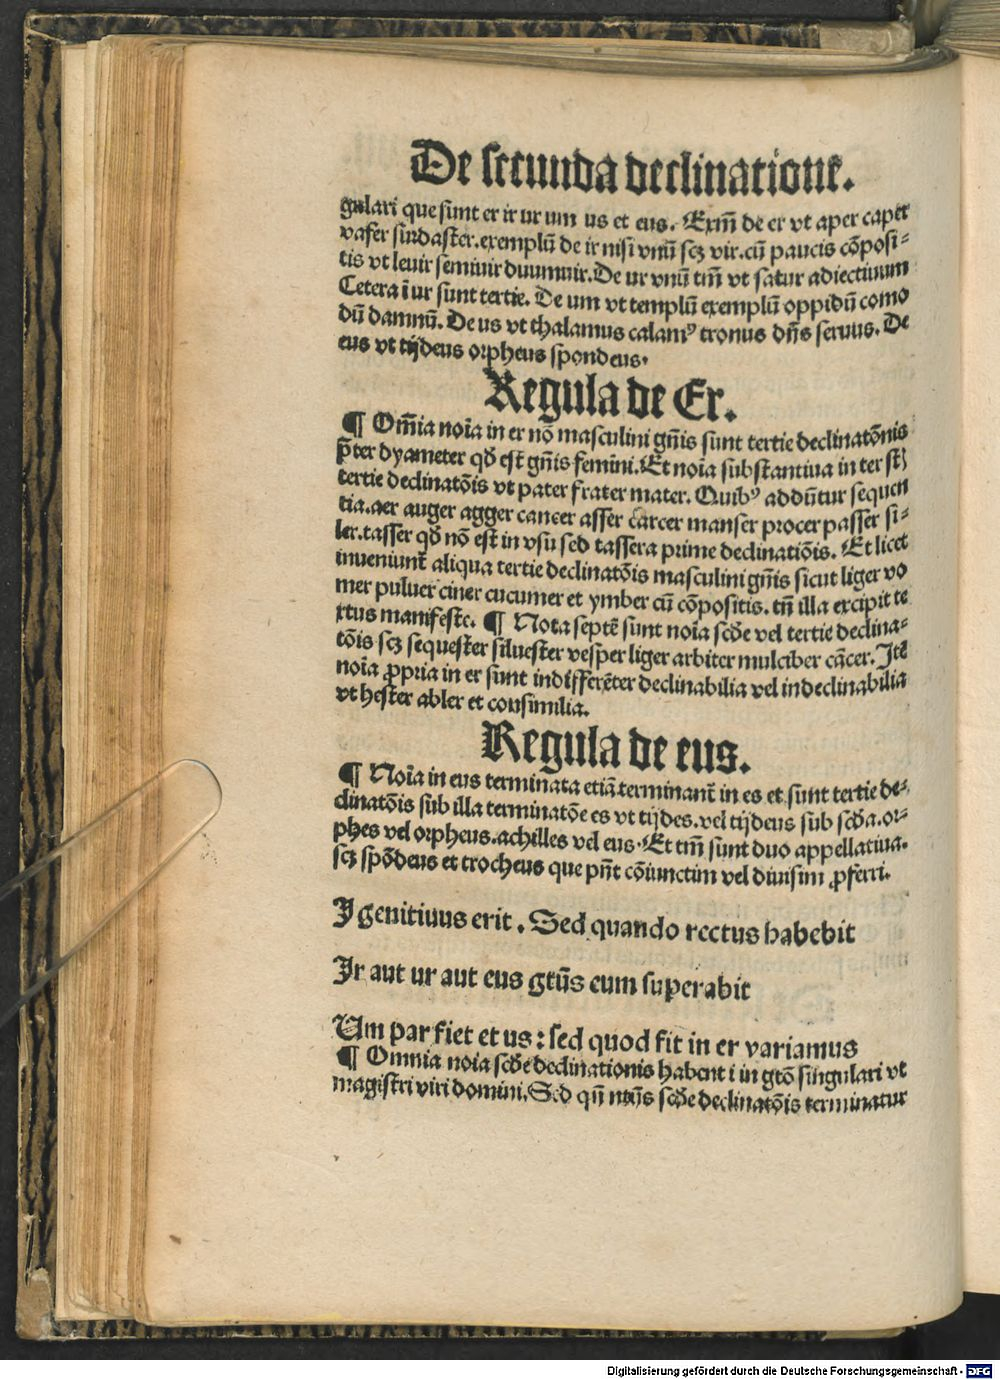 De secunda declinatione.
gulari que sunt er ir ur um us et eus. Exm̄ de er vt aper caper
vafer surdaster.exemplū de ir nisi vnū scz vir.cū paucis cōposi-
tis vt leuir semiuir duumuir.De ur vnū tm̄ vt satur adiectiuum
Cetera ī ur sunt tertie. De um vt templū exemplū oppidū como
dū damnū. De us vt thalamus calamꝰ tronus dn̄s seruus. De
eus vt tijdeus orpheus spondeus.
Regula de Er.
¶ Om̄ia noīa in er nō masculini gn̄is sunt tertie declinatōnis
p̄ter dyameter qd̄ est gn̄is femini. Et noīa substantiua in ter st̄
tertie declinatōis vt pater frater mater. Quibꝰ addūtur sequen
tia.aer auger agger cancer asser carcer manser procer passer si-
ler.tasser qd̄ nō est in vsu sed tassera prime declinatiōis. Et licet
inueniunt̄ aliqua tertie declinatōis masculini gn̄is sicut liger vo
mer puluer ciner cucumer et ymber cū cōpositis. tn̄ illa excipit te
xtus manifeste. ¶ Nota septē sunt noīa scd̄e vel tertie declina-
tōis scz sequester siluester vesper liger arbiter mulciber cācer. Itē
noīa ꝓpria in er sunt indifferēter declinabilia vel indeclinabilia
vt hester abler et consimilia.
Regula de eus.
¶ Noīa in eus terminata etiā terminant̄ in es et sunt tertie de-
clinatōis sub illa terminatōe es vt tijdes.vel tijdeus sub scd̄a.or-
phes vel orpheus.achilles vel eus. Et tm̄ sunt duo appellatiua.
scz spōdeus et trocheus que pn̄t cōiunctim vel diuisim ꝓferri.
I genitiuus erit. Sed quando rectus habebit
Ir aut ur aut eus gtūs eum superabit
Um par fiet et us: sed quod fit in er variamus
¶ Omnia noīa scd̄e declinationis habent i in gtō singulari vt
magistri viri domini. Sed qn̄ ntūs scd̄e declinatōis terminatur
Digitalisierung gefördert durch die Deutsche Forschungsgemeinschaft - DFG